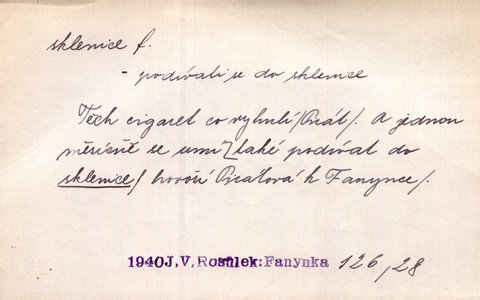 sklenice f.
- podívati se do sklenice
Těch cigaret co vyhulí /Picát/. A jednou
měsíčně se umí také podívat do
sklenice/ hovoří Picatová k Fanynce/.
1940 J.V. Rosůlek: Fanynka 126, 28